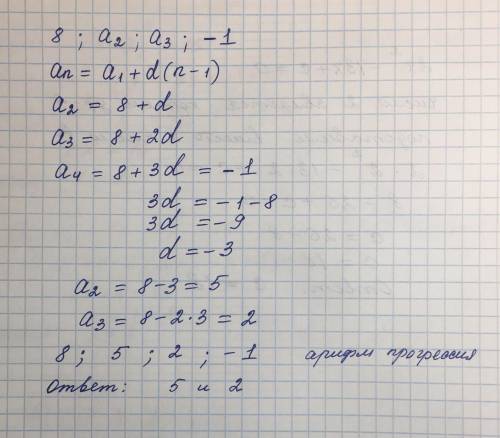 8 ; a₂ ; a₃ ; -1
an = a₁ + d(n-1)
a₂ = 8 + d
a₃ = 8 + 2d
a₄ = 8 + 3d = -1
3d = -1-8
3d = -9
d = -3
a₂ = 8-3 = 5
a₃ = 8-2·3 = 2
8 ; 5 ; 2 ; -1 арифм прогрессия
ответ: 5 и 2